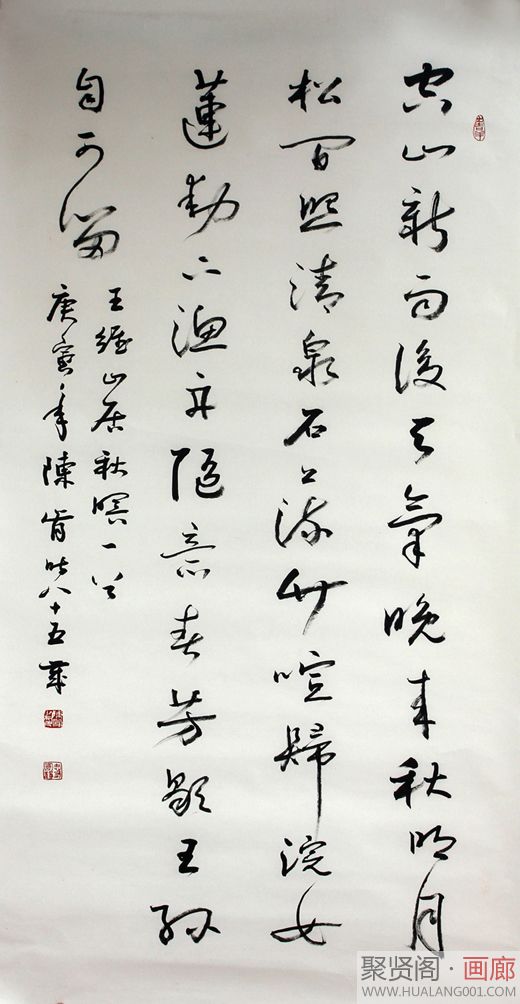 空山新雨後天氣晚来秋明月
松間照清泉石上流竹喧歸浣女
蓮動下漁舟隨意春芳歇王孫
自可留
王維山居秋暝一首
庚寅年陳肯时八十五歲
聚贤阁·画廊
WWW.HUALANG001.COM